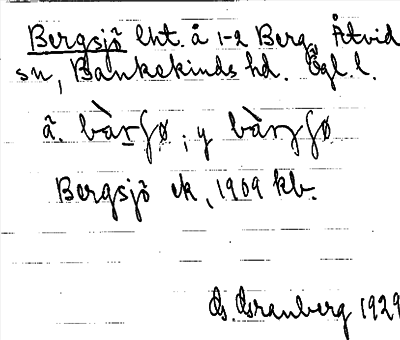 Bergsjö lht. å 1-2 Berg, Åtvid
sn, Bankekinds hd. Ögl. l.
ä. bàrʃø ; y bàrʃø
Bergsjö ek, 1909 kb.
G. Granberg 1929